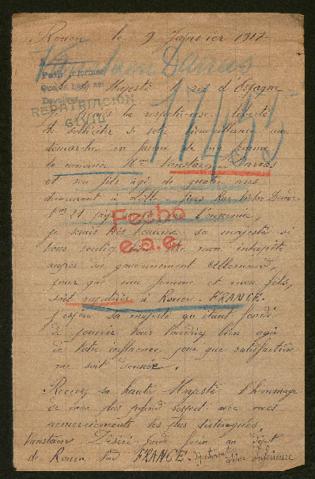 Rouen le 9 Janvier 1917
Vanstaen Darras
Majesté le roi d'Espagne
REPATRIACIÓN
11455
la respectueuse
de solliciter de votre bienveillance une
démarche en faveur de ma femme
Vanstaen Darras
et mon fils âgé de quatre ans
demeurant à Lille
Nº 71
Fecho
je serais très heureux sa majesté si
vous mon interprète
e.a.e.
auprès du gouvernement allemand,
pour que ma femme et mon fils,
soit rapatriés à Rouen - FRANCE.
J'espère sa majesté qu'étant fondé
de pouvoir vous voudrez bien agir
de votre influence pour que satisfaction
me soit donnée.
Recevez sa haute Majesté l'hommage
de mon plus profond respect avec mes
remerciements les plus distingués,
Vanstaen Désiré au dépôt
de Rouen FRANCE. Seine inférieure